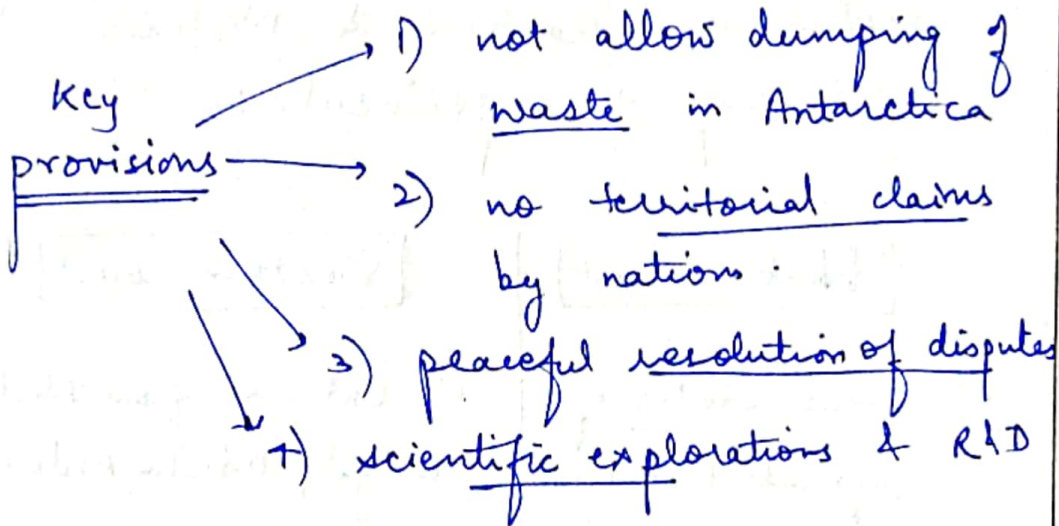 Key
provisions
1) not allow dumping of
waste in Antarctica
2) no territorial claims
by nations.
3) peaceful resolution of disputes
4) scientific explorations & R&D